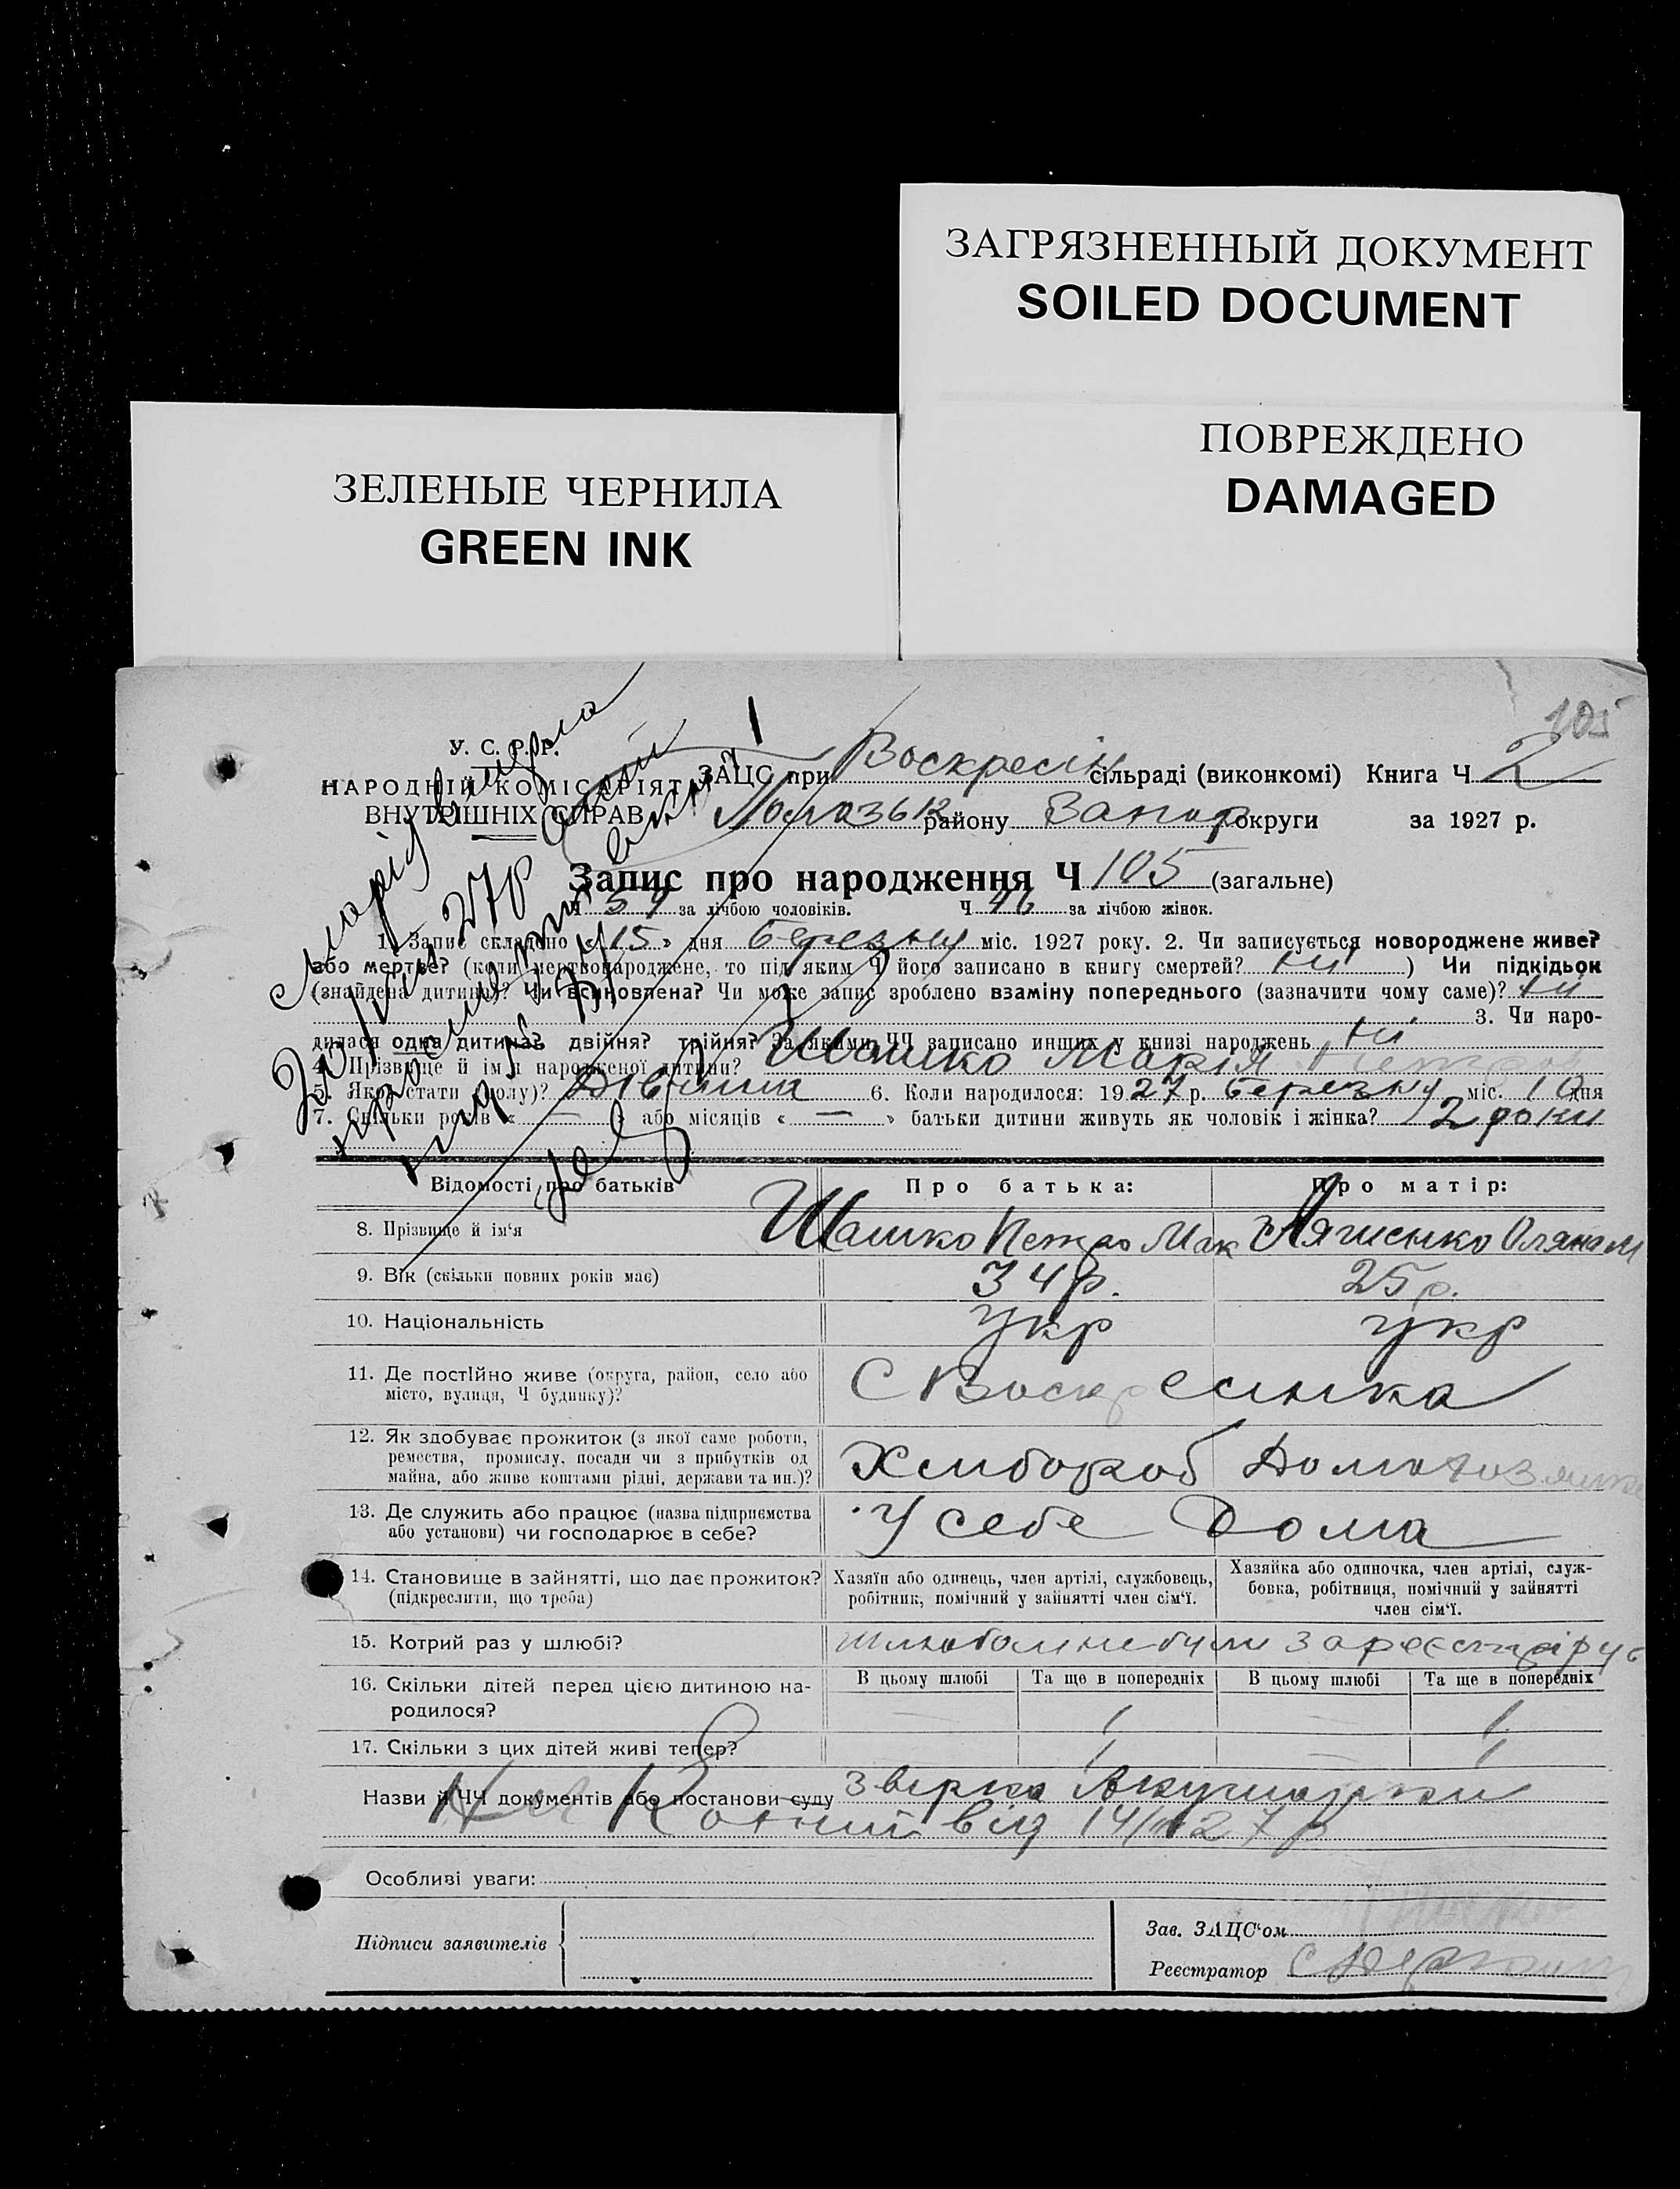 ЗАГРЯЗНЕННЫЙ ДОКУМЕНТ
SOILED DOCUMENT
ПОВРЕЖДЕНО
DAMAGED
ЗЕЛЕНЫЕ ЧЕРНИЛА
GREEN INK
105
У. С. Р. Р.
НАРОДНІЙ КОМІСАРІЯТ
ВНУТРІШНІХ СПРАВ
ЗАЦС при Воскресін сільраді (виконкомі) Книга Ч 2
району Запор округи за 1927 р.
Запис про народження Ч 105 (загальне)
Ч 59 за лічбою чоловіків. Ч 46 за лічбою жінок.
1. Запис складено «15» дня березну міс. 1927 року. 2. Чи записується новороджене живе?
або мертве? (коли мертвонароджене, то під яким Ч його записано в книгу смертей? ні ) Чи підкідьок
(знайдена дитина)? Чи всиновлена? Чи може запис зроблено взаміну попереднього (зазначити чому саме)? ні
3. Чи наро-
дилася одна дитина? двійня? трійня? За якими ЧЧ записано инших у книзі народжень ні
4. Прізвище й ім'я народженої дитини? Шашко Марія
5. Якої стати (полу)? Дівчина 6. Коли народилося: 1927 р. березну міс. 10 дня
7. Скільки років «—» або місяців «—» батьки дитини живуть як чоловік і жінка? 2 роки
Відомості про батьків Про батька: Про матір:
8. Прізвище й ім'я Шашко Петро Мак
9. Вік (скільки повних років має) 34 р. 25 р.
10. Національність укр укр
11. Де постійно живе (округа, район, село або
місто, вулиця, Ч будинку)? С Воскресинка
12. Як здобуває прожиток (з якої саме роботи,
ремества, промислу, посади чи з прибутків од
майна, або живе коштами рідні, держави та ин.)? Хлібороб
13. Де служить або працює (назва підприємства
або установи) чи господарює в себе? У себе дома
14. Становище в зайнятті, що дає прожиток?
(підкреслити, що треба)
Хазяїн або одинець, член артілі, службовець,
робітник, помічний у зайнятті член сім'ї.
Хазяйка або одиночка, член артілі, служ-
бовка, робітниця, помічний у зайнятті
член сім'ї.
15. Котрий раз у шлюбі?
16. Скільки дітей перед цією дитиною на-
родилося?
В цьому шлюбі Та ще в попередніх В цьому шлюбі Та ще в попередніх
— 1 — 1
17. Скільки з цих дітей живі тепер? 1 — 1
Назви й ЧЧ документів або постанови суду
від 14/III 27 р
Особливі уваги:
Підписи заявителів
Зав. ЗАЦС'ом
Реєстратор